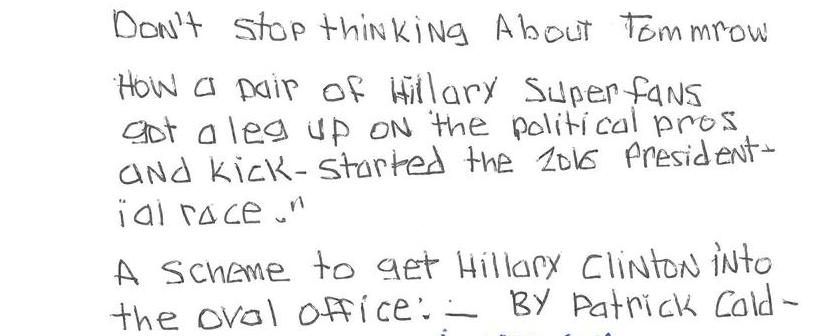 Don't stop thinking About Tommrow
How a pair of Hillary Superfans
got a leg up on the political pros
and kick-started the 2016 President-
ial race."
A scheme to get Hillary Clinton into
the oval office:- By Patrick Cald-